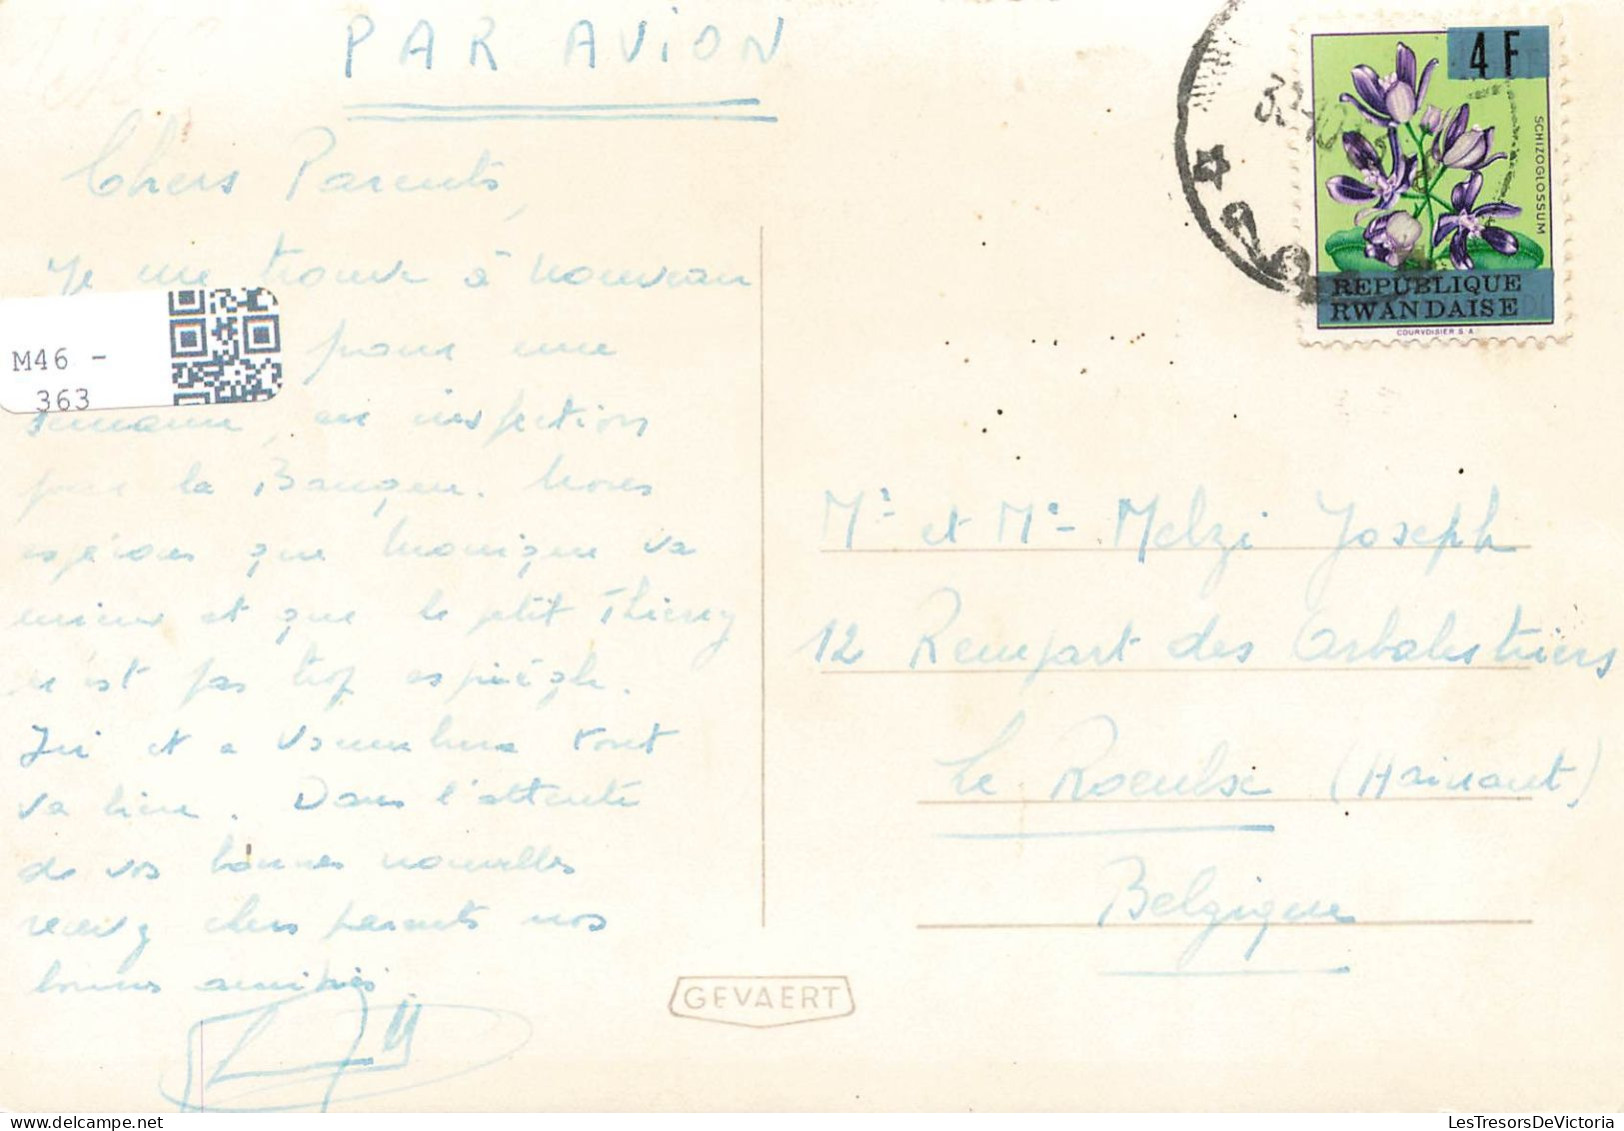 PAR AVION
Chers Parents,
Je me trouve à nouveau
pour une
semaine, en inspection
pour la Banque. Nous
espérons que Monique va
mieux et que le petit Thierry
n'est pas trop espiègle.
Ici et a Usumbura tout
va bien. Dans l'attente
de vos bonnes nouvelles
recevez chers parents nos
bonnes amitiés.
M46 -
363
4 F
SCHIZOGLOSSUM
REPUBLIQUE
RWANDAISE
COURVOISIER S.A.
Mr et Me Melzi Joseph
12 Rempart des Arbalestriers
Le Roeulx (Hainaut)
Belgique
GEVAERT
LesTresorsDeVictoria.com